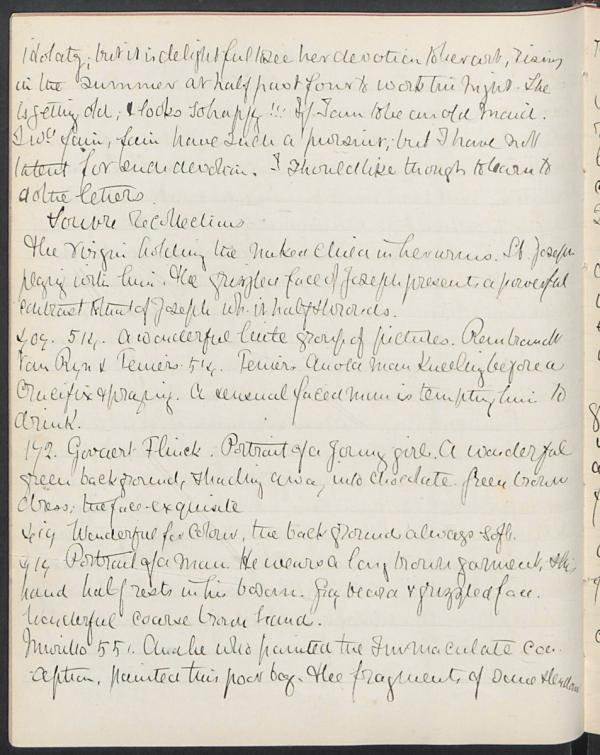 idolatry; but it is delightful to see her devotion to her art, rising
in the summer at half past four to work till night. She
is getting old, & looks so happy!!! If I am to be an old maid.
I wod fain, fain have such a pursuit; but I have not
talent for such devotion. I should like though to learn to
do the letters.
Louvre Recollections
The Virgin holding the naked Child in her arms. St. Joseph
playing with him. The grizzled face of Joseph presents a powerful
contrast to that of Joseph wh. is half
409. 514. A wonderful little group of pictures. Rembrandt
Van Ryn & Teniers. 514. Teniers. An old man kneeling before a
Crucifix & praying. A sensual faced man is tempting him to
drink.
172. Govaert Flinck. Portrait of a young girl. A wonderful
green background, shading away into chocolate. Green brown
dress; the face exquisite
419 Wonderful for colour, the background always soft.
414 Portrait of a man. He wears a long brown garment, & his
hand half rests in his bosom. Grey beard & grizzled face.
Wonderful coarse brown hand.
Murillo 551. And he who painted the Immaculate Con-
ception, painted this poor boy. The fragments of some